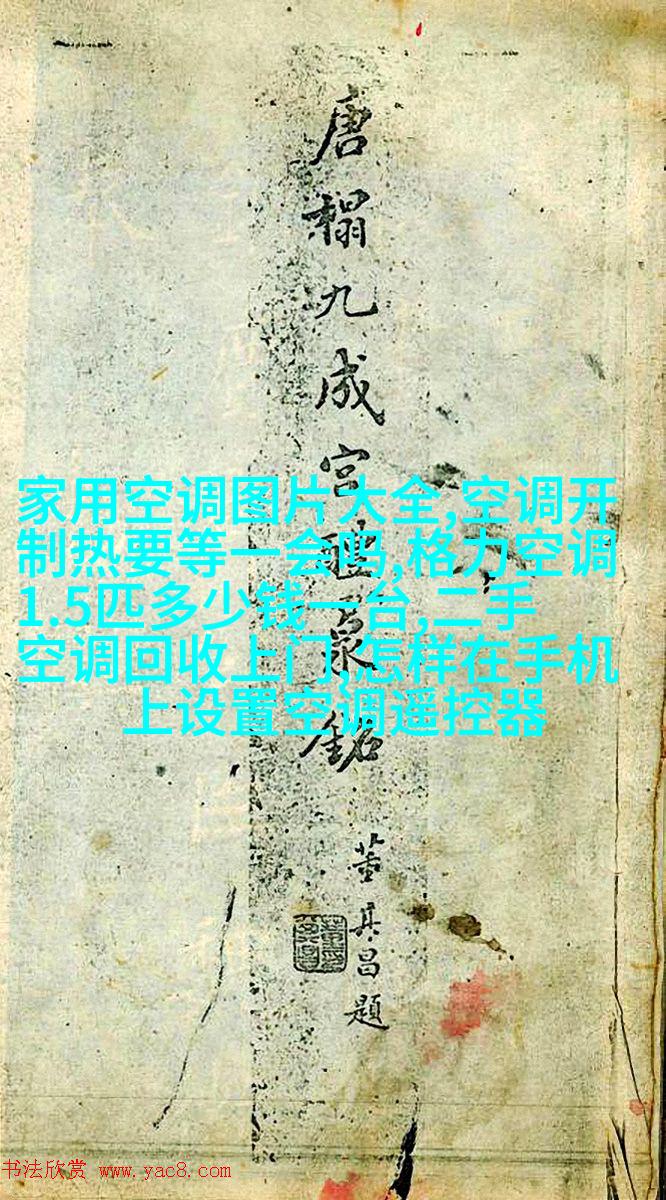 唐榻九成宫醴泉銘
董其昌題
家用空调图片大全,空调开
制热要等一会吗,格力空调
1.5匹多少钱一台,二手
空调回收上门,怎样在手机
上设置空调遥控器
书法欣赏 www.yac8.com